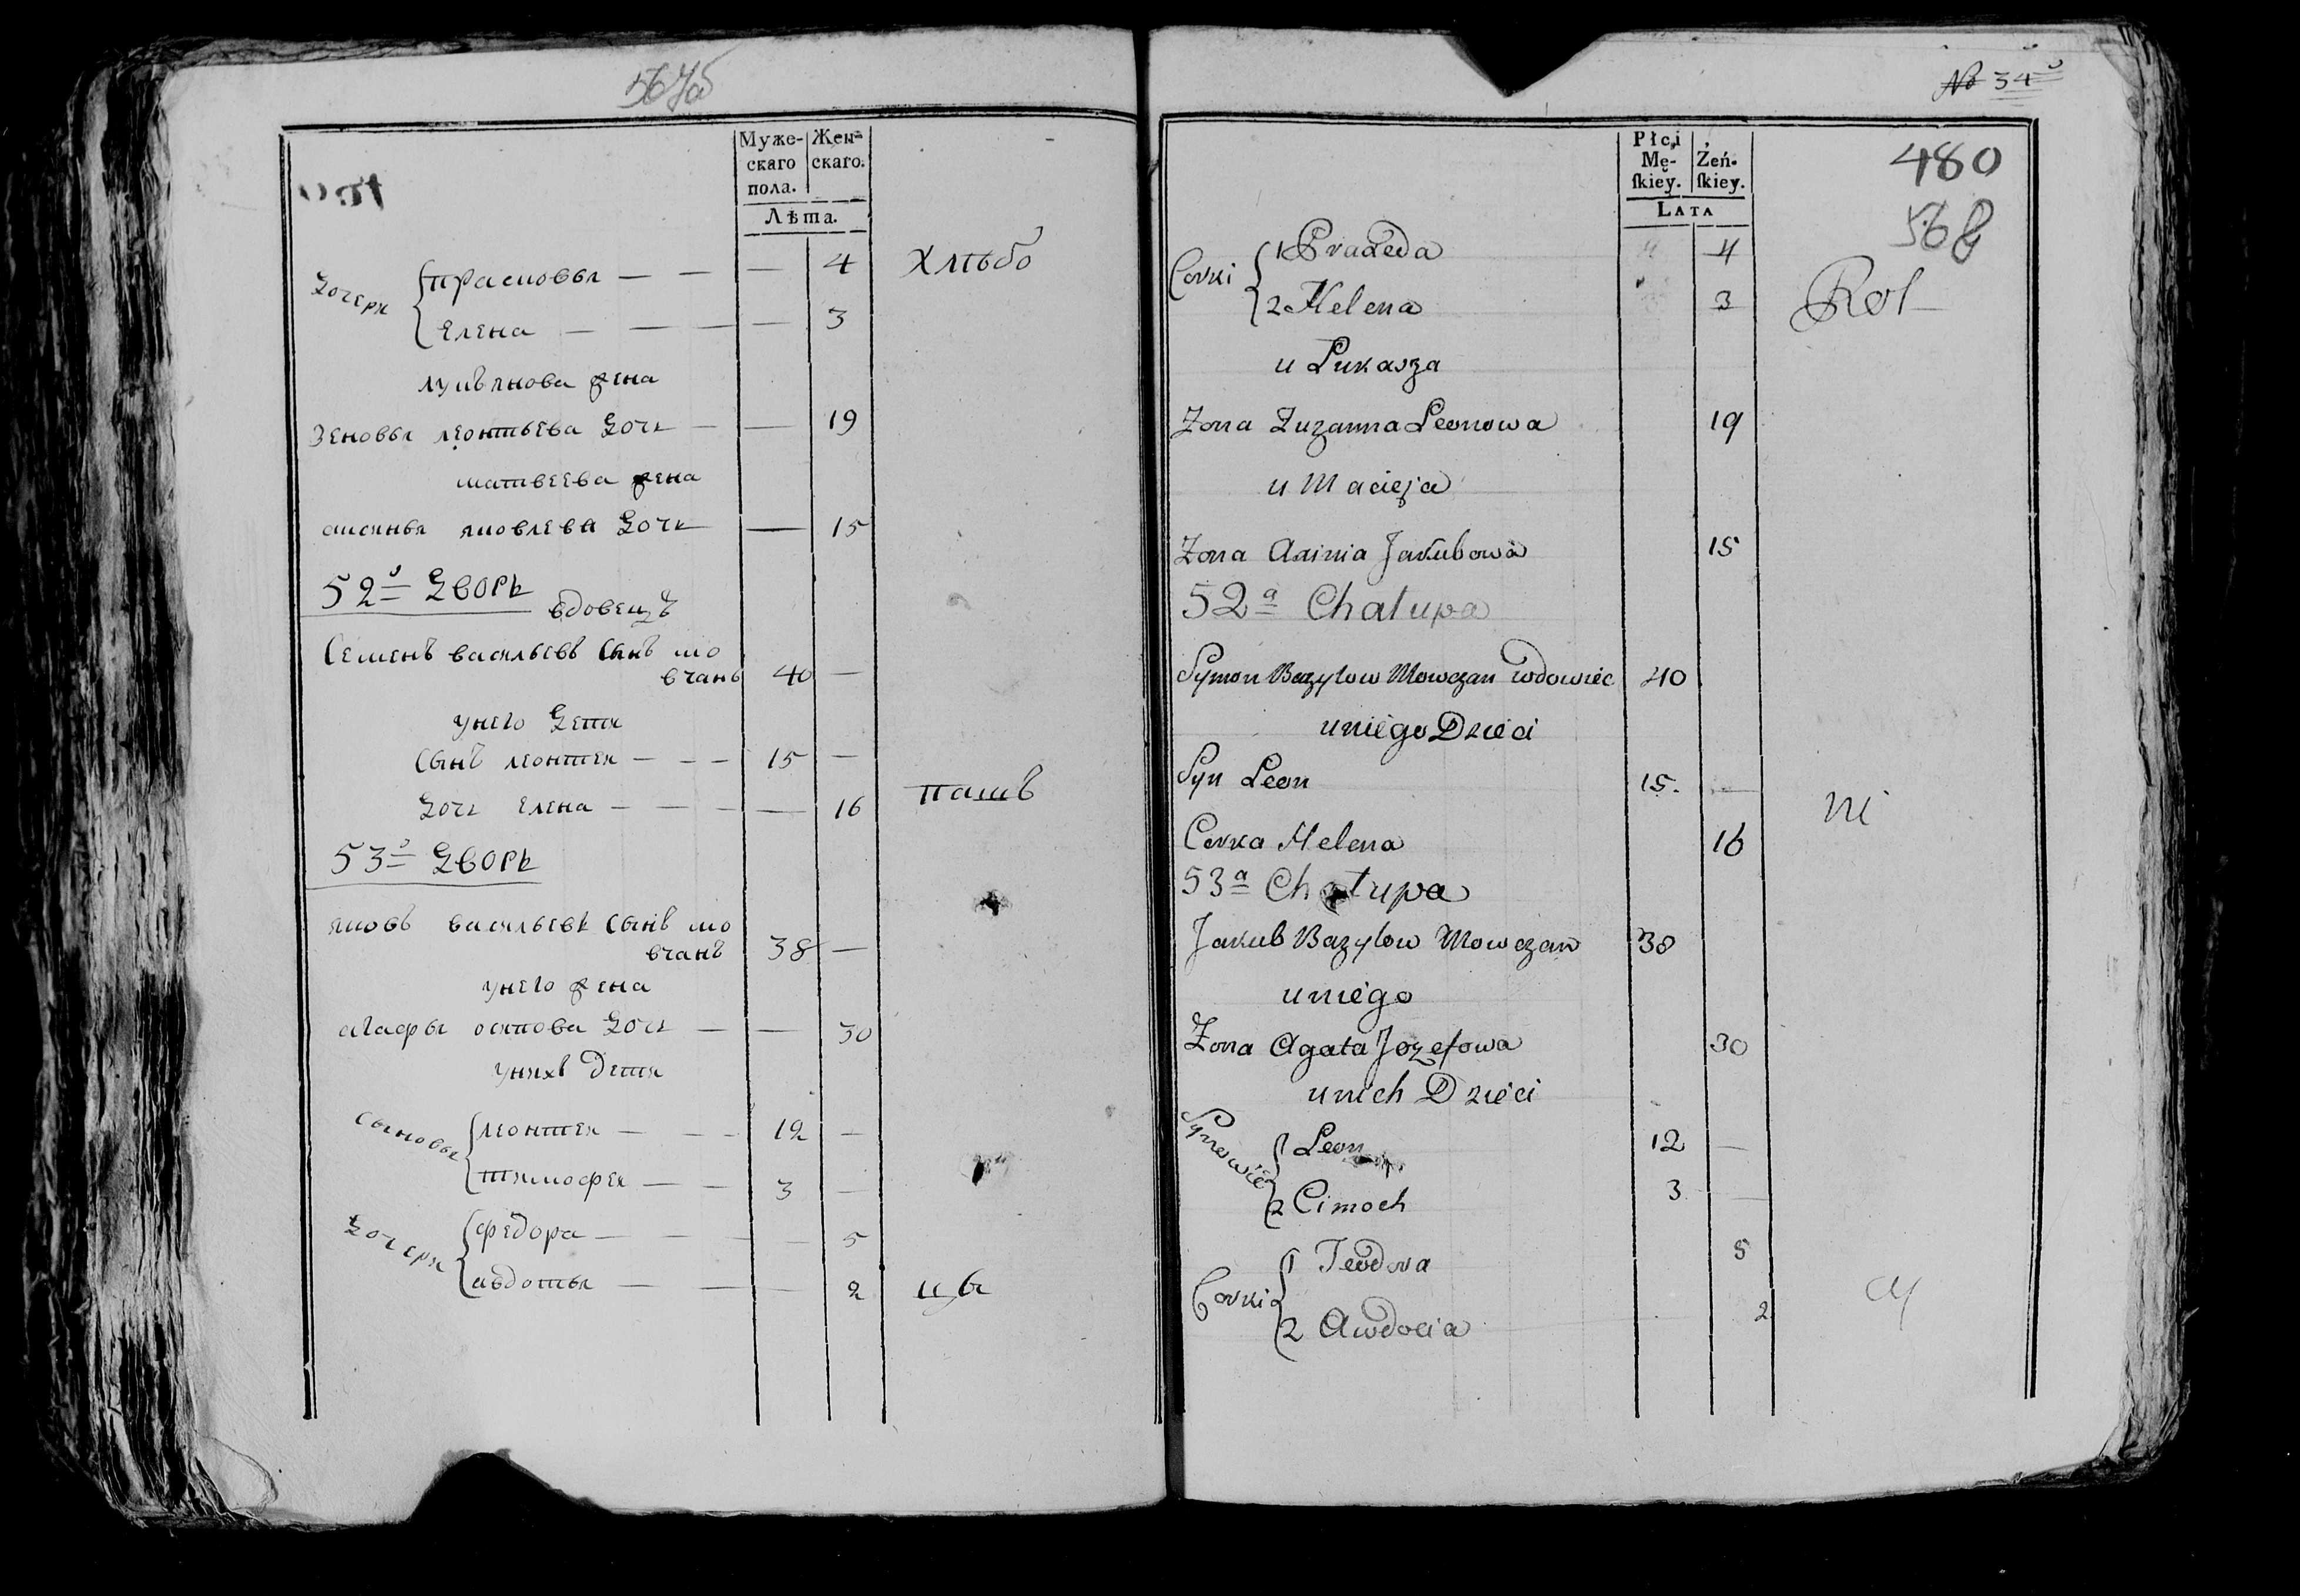 567об
Муже-
скаго
пола.
Жен-
скаго.
Лѣта.
Дочери
Прасковья — — — 4 Хлѣбо
Елена — — — — 3
Лукъянова жена
Зеновья Леонтьева Дочь — — 19
Матвеева жена
Аксинья Яковлева Дочь — 15
52й Дворъ
вдовецъ
Семенъ Васильевъ Сынъ Мо
вчанъ 40 —
у него Дети
Сынъ Леонтей — — — 15 —
Дочь Елена — — — — 16 паш
53й Дворъ
Яковъ Васильевъ Сынъ Мо
вчанъ 38 —
у него жена
Агафья Осипова Дочь — — 30
у нихъ Дети
Сыновья
Леонтей — — — 12 —
Тимофей — — 3 —
Дочери
Федора — — — — 5
Авдотья — — — 2 цы
№ 34й
Płci
Mę-
skiey.
Żeń-
skiey.
Lata
480
568
Corki
1 Praxeda 4
2 Helena 3 Rol
u Lukasza
Zona Zuzanna Leonowa 19
u Macieja
Zona Axinia Jakubowa 15
52a Chalupa
Symon Bazylow Mowczan wdowiec 40
u niego Dzieci
Syn Leon 15. —
Corka Helena 16 ni
53a Chalupa
Jakub Bazylow Mowczan 38
u niego
Zona Agata Jozefowa 30
u nich Dzieci
Synowie
1 Leon 12 —
2 Cimoch 3 —
Corki
1 Teodora 5
2 Awdocia 2 cy